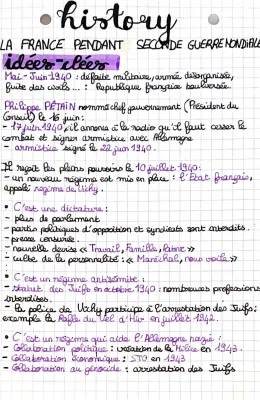 history
LA FRANCE PENDANT SECONDE GUERRE MONDIALE
idées-clées
Mai-Juin 1940 : défaite militaire, armée désorganisée,
fuite des civils ... : République française boulversée.
Philippe PÉTAIN nommé chef gouvernement (Président du
Conseil) le 16 juin :
- 17 juin 1940, il annonce à la radio qu'il faut cesser le
combat et signer armistice avec Allemagne
- armistice signé le 22 juin 1940.
Il reçoit les pleins pouvoirs le 10 juillet 1940:
- un nouveau régime est mis en place : l'État français,
appelé régime de Vichy.
• C'est une dictature :
- plus de parlement
- partis politiques d'opposition et syndicats sont interdits.
- presse censurée.
- nouvelle devise « Travail, Famille, Patrie »
- culte de la personnalité : « Maréchal, nous voilà »
• C'est un régime antisémite :
- statut des Juifs en octobre 1940 : nombreuses professions
interdites.
- la police de Vichy participe à l'arrestation des Juifs:
exemple la Rafle du Vel d'Hiv en juillet 1942.
• C'est un régime qui aide l'Allemagne nazie :
- Collaboration politique : création de la Milice en 1943.
- Collaboration économique : STO en 1943
- Collaboration au génocide : arrestation des Juifs